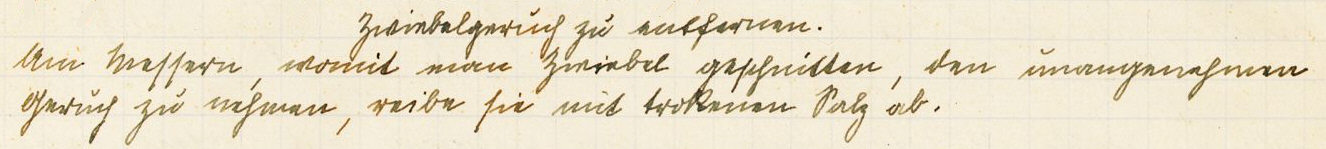 Zwiebelgeruch zu entfernen.
Um Messern, womit man Zwiebel geschnitten, den unangenehmen
Geruch zu nehmen, reibe sie mit trokenen Salz ab.